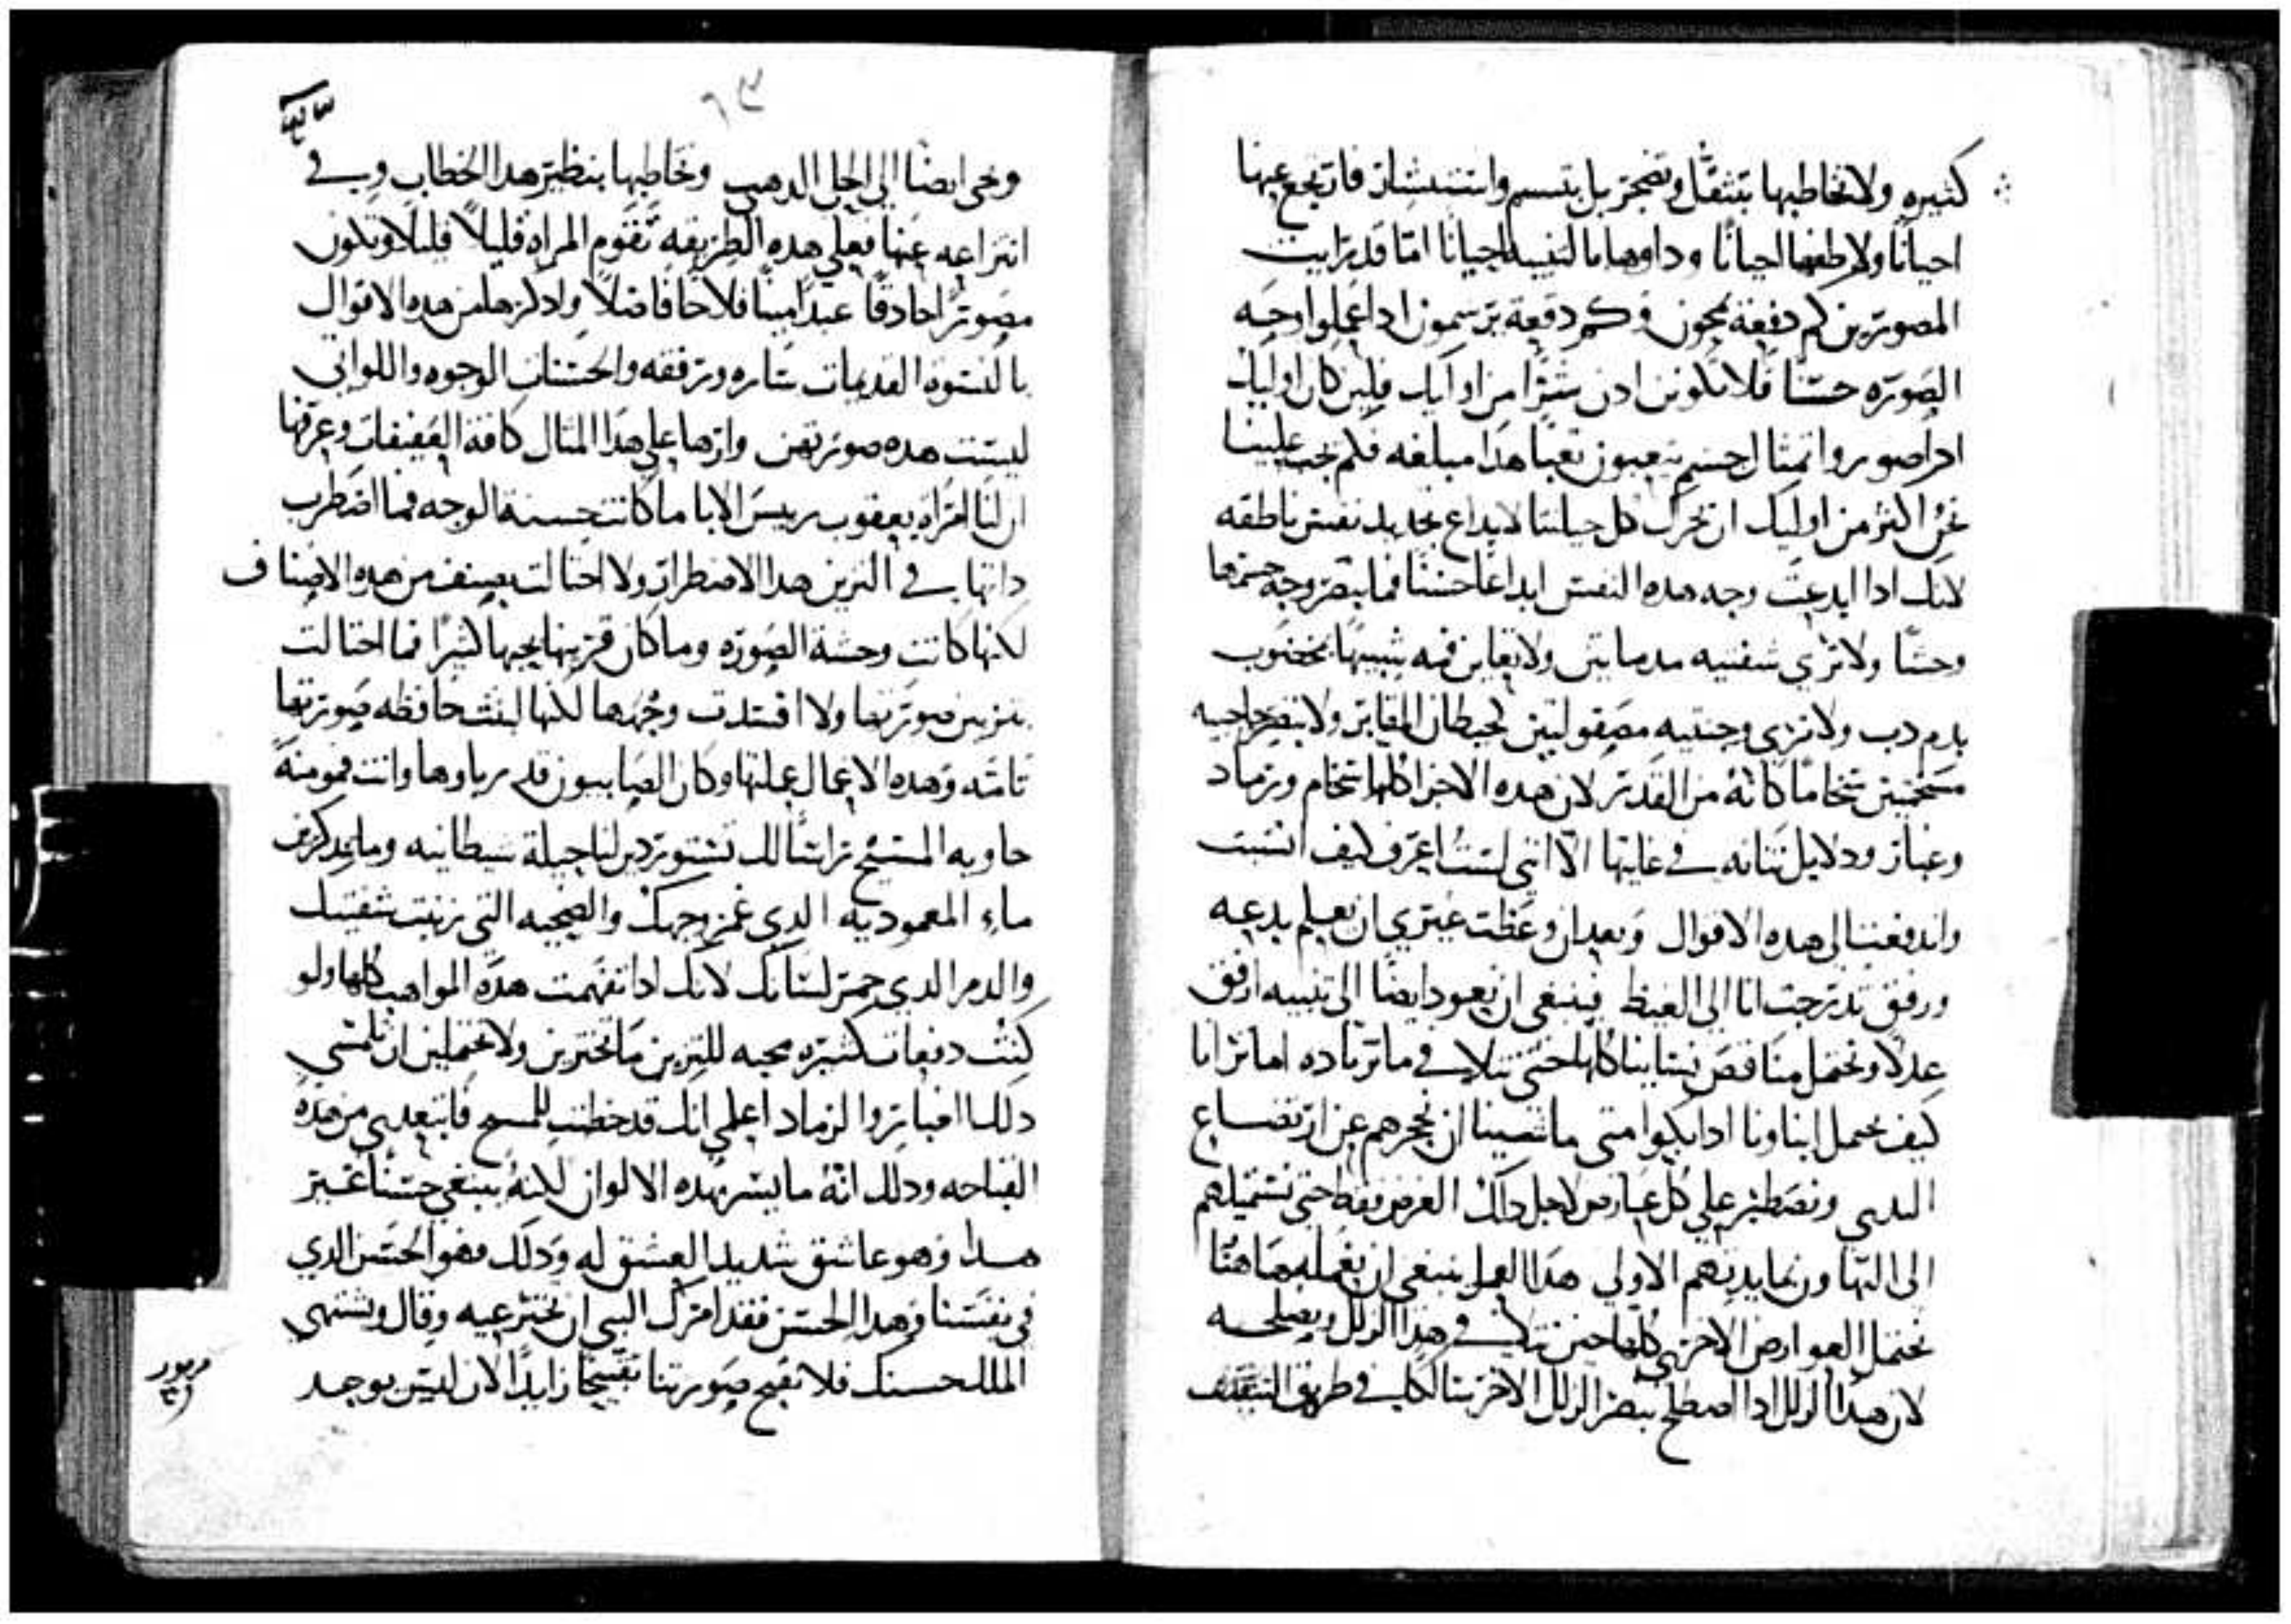 كثيره ولا تخاطبها بتثقل وتضجر بل بتسم واستبشار فارتجع عنها
احيانًا ولاطفها احيانًا وداوها بالتفييد احيانًا امّا قد رايت
المصورين كم دفعة يمحون وكم دفعة يرسمون اذا عملوا وجه
الصورة حسنًا فلا نكونن ادن شرًا من اوليك فلين كان اوليك
ادا صوروا تمثال جسم يتعبون تعبًا هدا مبلغه فلم يجب علينا
نحن اكثر من اوليك ان نحرك كل حيلتنا لابداع تجديد نفس ناطقه
لانك ادا ابدعت وجه هده النفس ابداعًا حسنًا فما تبصر وجه جسمها
وحشًا ولا تري شفتيه مدماتين ولا تعاين فمه شبيهًا بمخضوب
بدم دب ولا تري وجنتيه مصقولتين لحيطان المقابر ولا تبصر حاجبيه
مسخمين سخامًا كانهُ من القدر لان هده الاجزا كلها سخام ورماد
وغبار ودلايل نتانه في غايتها الا انني لست اعرف كيف انسبت
واندفعت الي هده الاقوال وبعد ان وعظت غيري ان يعلم بدعه
ورفق تدرجت انا الي الغيظ فينبغي ان نعود ايضًا الي تنبيه ارفق
عدلا ونحتمل مناقص نساينا كلها حتى نتلافي ما نرتاده اما ترانا
كيف نحمل ابناونا ادا بكوا متى ما نصبنا ان نحجرهم عن ارتضاع
الثدي ونصطبر علي كل عارض لاجل دلك الغرض فقط حتى نستميلهم
الى التهاون بمايدتهم الاولي هدا العمل ينبغي ان نعمله هاهنا
نحتمل العوارض الاخري كلها حتى نتلافي هدا الزلل ونصلحه
لان هدا الزلل ادا اصطلح تبصر الزلل الاخر سالكا في طريق التثقف
٦٣
وخي ايضًا الى الحلي الدهب وخاطبها بنظير هدا الخطاب وفي
انتزاعه عنها فعلي هده الطريقه تقوم المراة قليلًا قليلًا وتكون
مصورًا حادقًا عبدًا امينًا فلاحًا فاضلًا وادكر لها من هده الاقوال
بالنسوة القديمات ساره ورفقه والحسنات الوجوه واللواتي
ليست هده صورتهن وارها علي هدا المثال كافة العفيفات وعرفها
ان ليا امراة يعقوب رييس الابا ما كانت حسنة الوجه فما اضطرب
داتها في التزين هدا الاضطرار ولا احتالت بصنف من هده الاصناف
لكنها كانت وحشة الصورة وما كان قرينها يحبها كثيرًا فما احتالت
بتزيين صورتها ولا افسدت وجهها لكنها لبثت حافظه صورتها
تامة وهده الاعمال عملتها وكان الصابيون قد رباوها وانت مومنةً
حاويه المسيح راسًا لك تستوردين لنا حيلة شيطانيه وما تدكرين
ماء المعموديه الدي غمر وجهك والضحيه التي زينت شفتيك
والدم الدي حمر لسانك لانك ادا تفهمت هده المواهب كلها ولو
كنت دفعات كثيره محبه للتزين ما تجترين ولا تحتملين ان تلمسي
دلك الغبار والرماد اعلمي انك قد خطبت للمسيح فابتعدي من هده
القباحه ودلك انهُ ما يسر بهده الالوان لكنهُ يبتغي حسنًا غير
هدا وهو عاشق شديد العشق له ودلك فهو الحسن الدي
في نفسنا وهدا الحسن فقد امرك النبي ان تخترعيه وقال ويشتهي
الملك حسنك فلا نقبح صورتنا تقبيحًا زايدًا لان ليس يوجد
مزمور